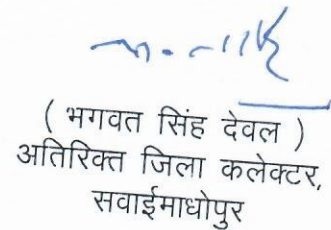 ( भगवत सिंह देवल )
अतिरिक्त जिला कलेक्टर,
सवाईमाधोपुर